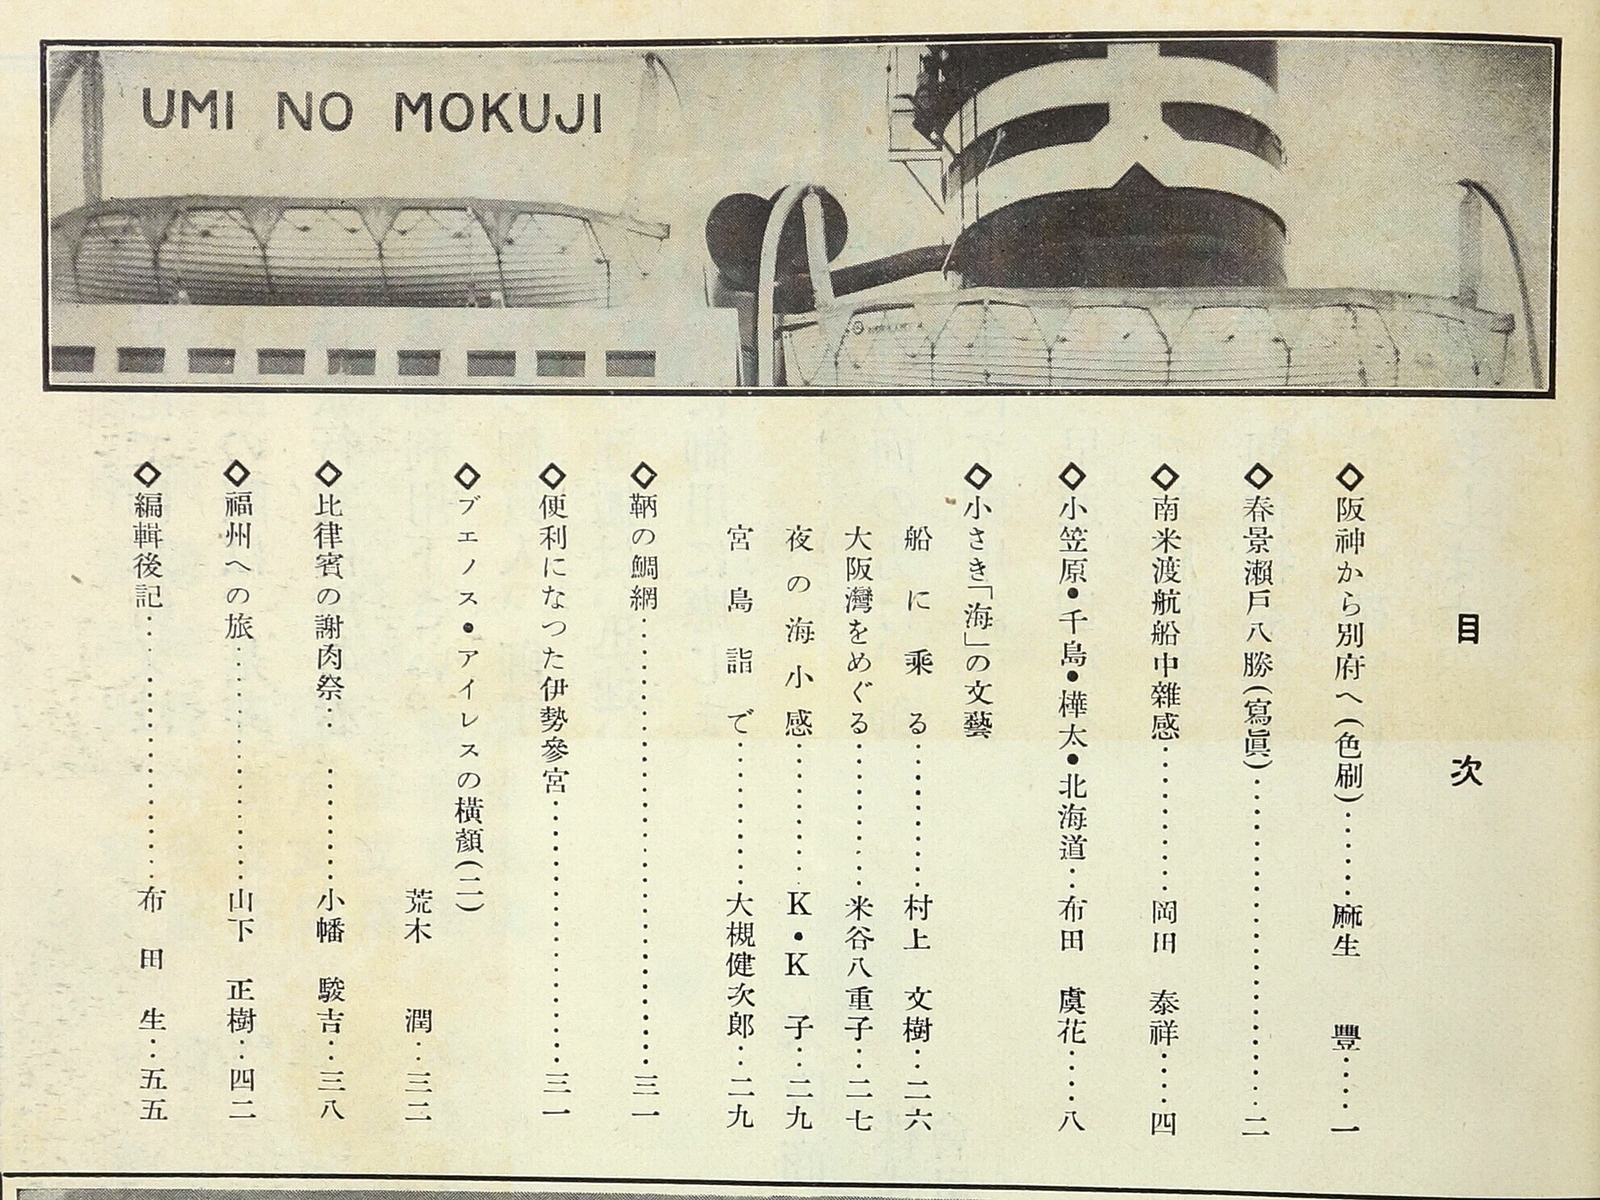 UMI NO MOKUJI
目次
◇阪神から別府へ(色刷)‥‥‥麻生 豊‥‥‥一
◇春景瀬戸八勝(寫眞)‥‥‥‥‥‥二
◇南米渡航船中雜感‥‥‥‥岡田 泰祥‥‥四
◇小笠原・千島・樺太・北海道‥布田 虞花‥‥八
◇小さき「海」の文藝
船に乘る‥‥‥‥村上 文樹‥二六
大阪灣をめぐる‥‥‥‥米谷八重子‥二七
夜の海小感‥‥‥‥K・K 子‥二九
宮島詣で‥‥‥‥大槻健次郎‥二九
◇鞆の鯛網‥‥‥‥‥‥‥‥三一
◇便利になつた伊勢參宮‥‥‥‥‥‥三一
◇ブエノス・アイレスの橫顏(二)
荒木 潤‥三二
◇比律賓の謝肉祭‥‥‥‥小幡 駿吉‥三八
◇福州への旅‥‥‥‥‥山下 正樹‥四二
◇編輯後記‥‥‥‥‥布田生‥五五